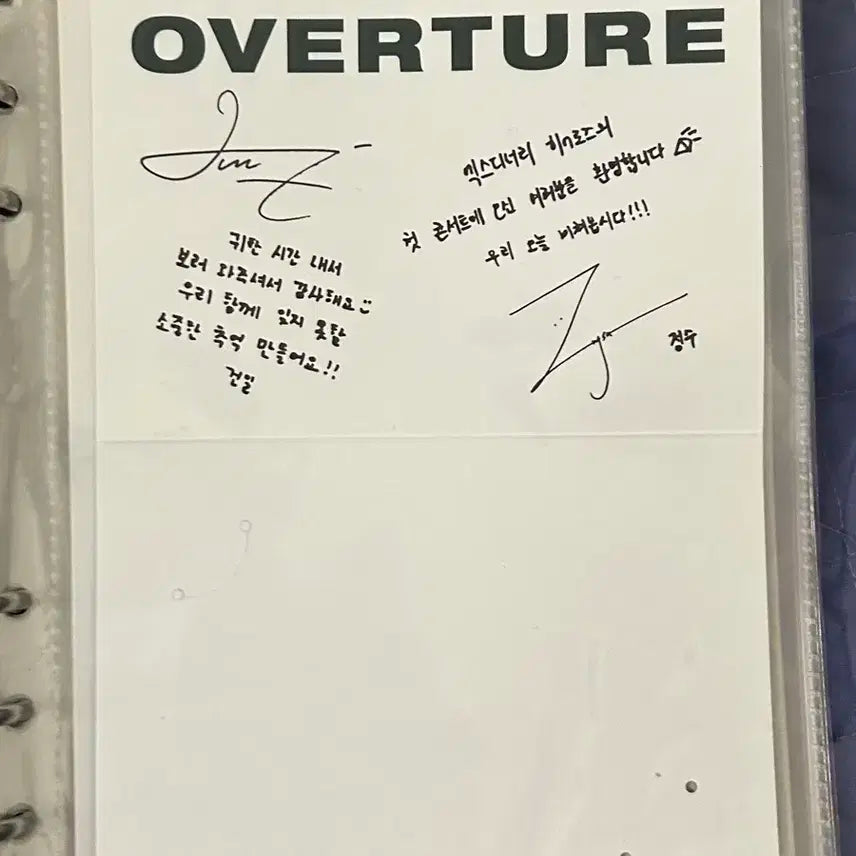 OVERTURE
귀한 시간 내서
보러 와주셔서 감사해요
우리 함께 잊지 못할
소중한 추억 만들어요!!
건일
엑스디너리 히어로즈의
첫 콘서트에 오신 여러분을 환영합니다
우리 오늘 미쳐봅시다!!!
정수